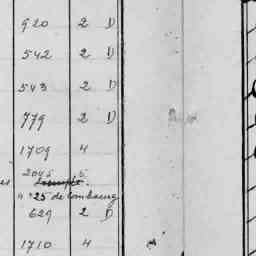 920 2 D
542 2 D
543 2 D
779 2 D
1709 4
2045 5
n° 25 de Combourg
629 2 D
1710 4